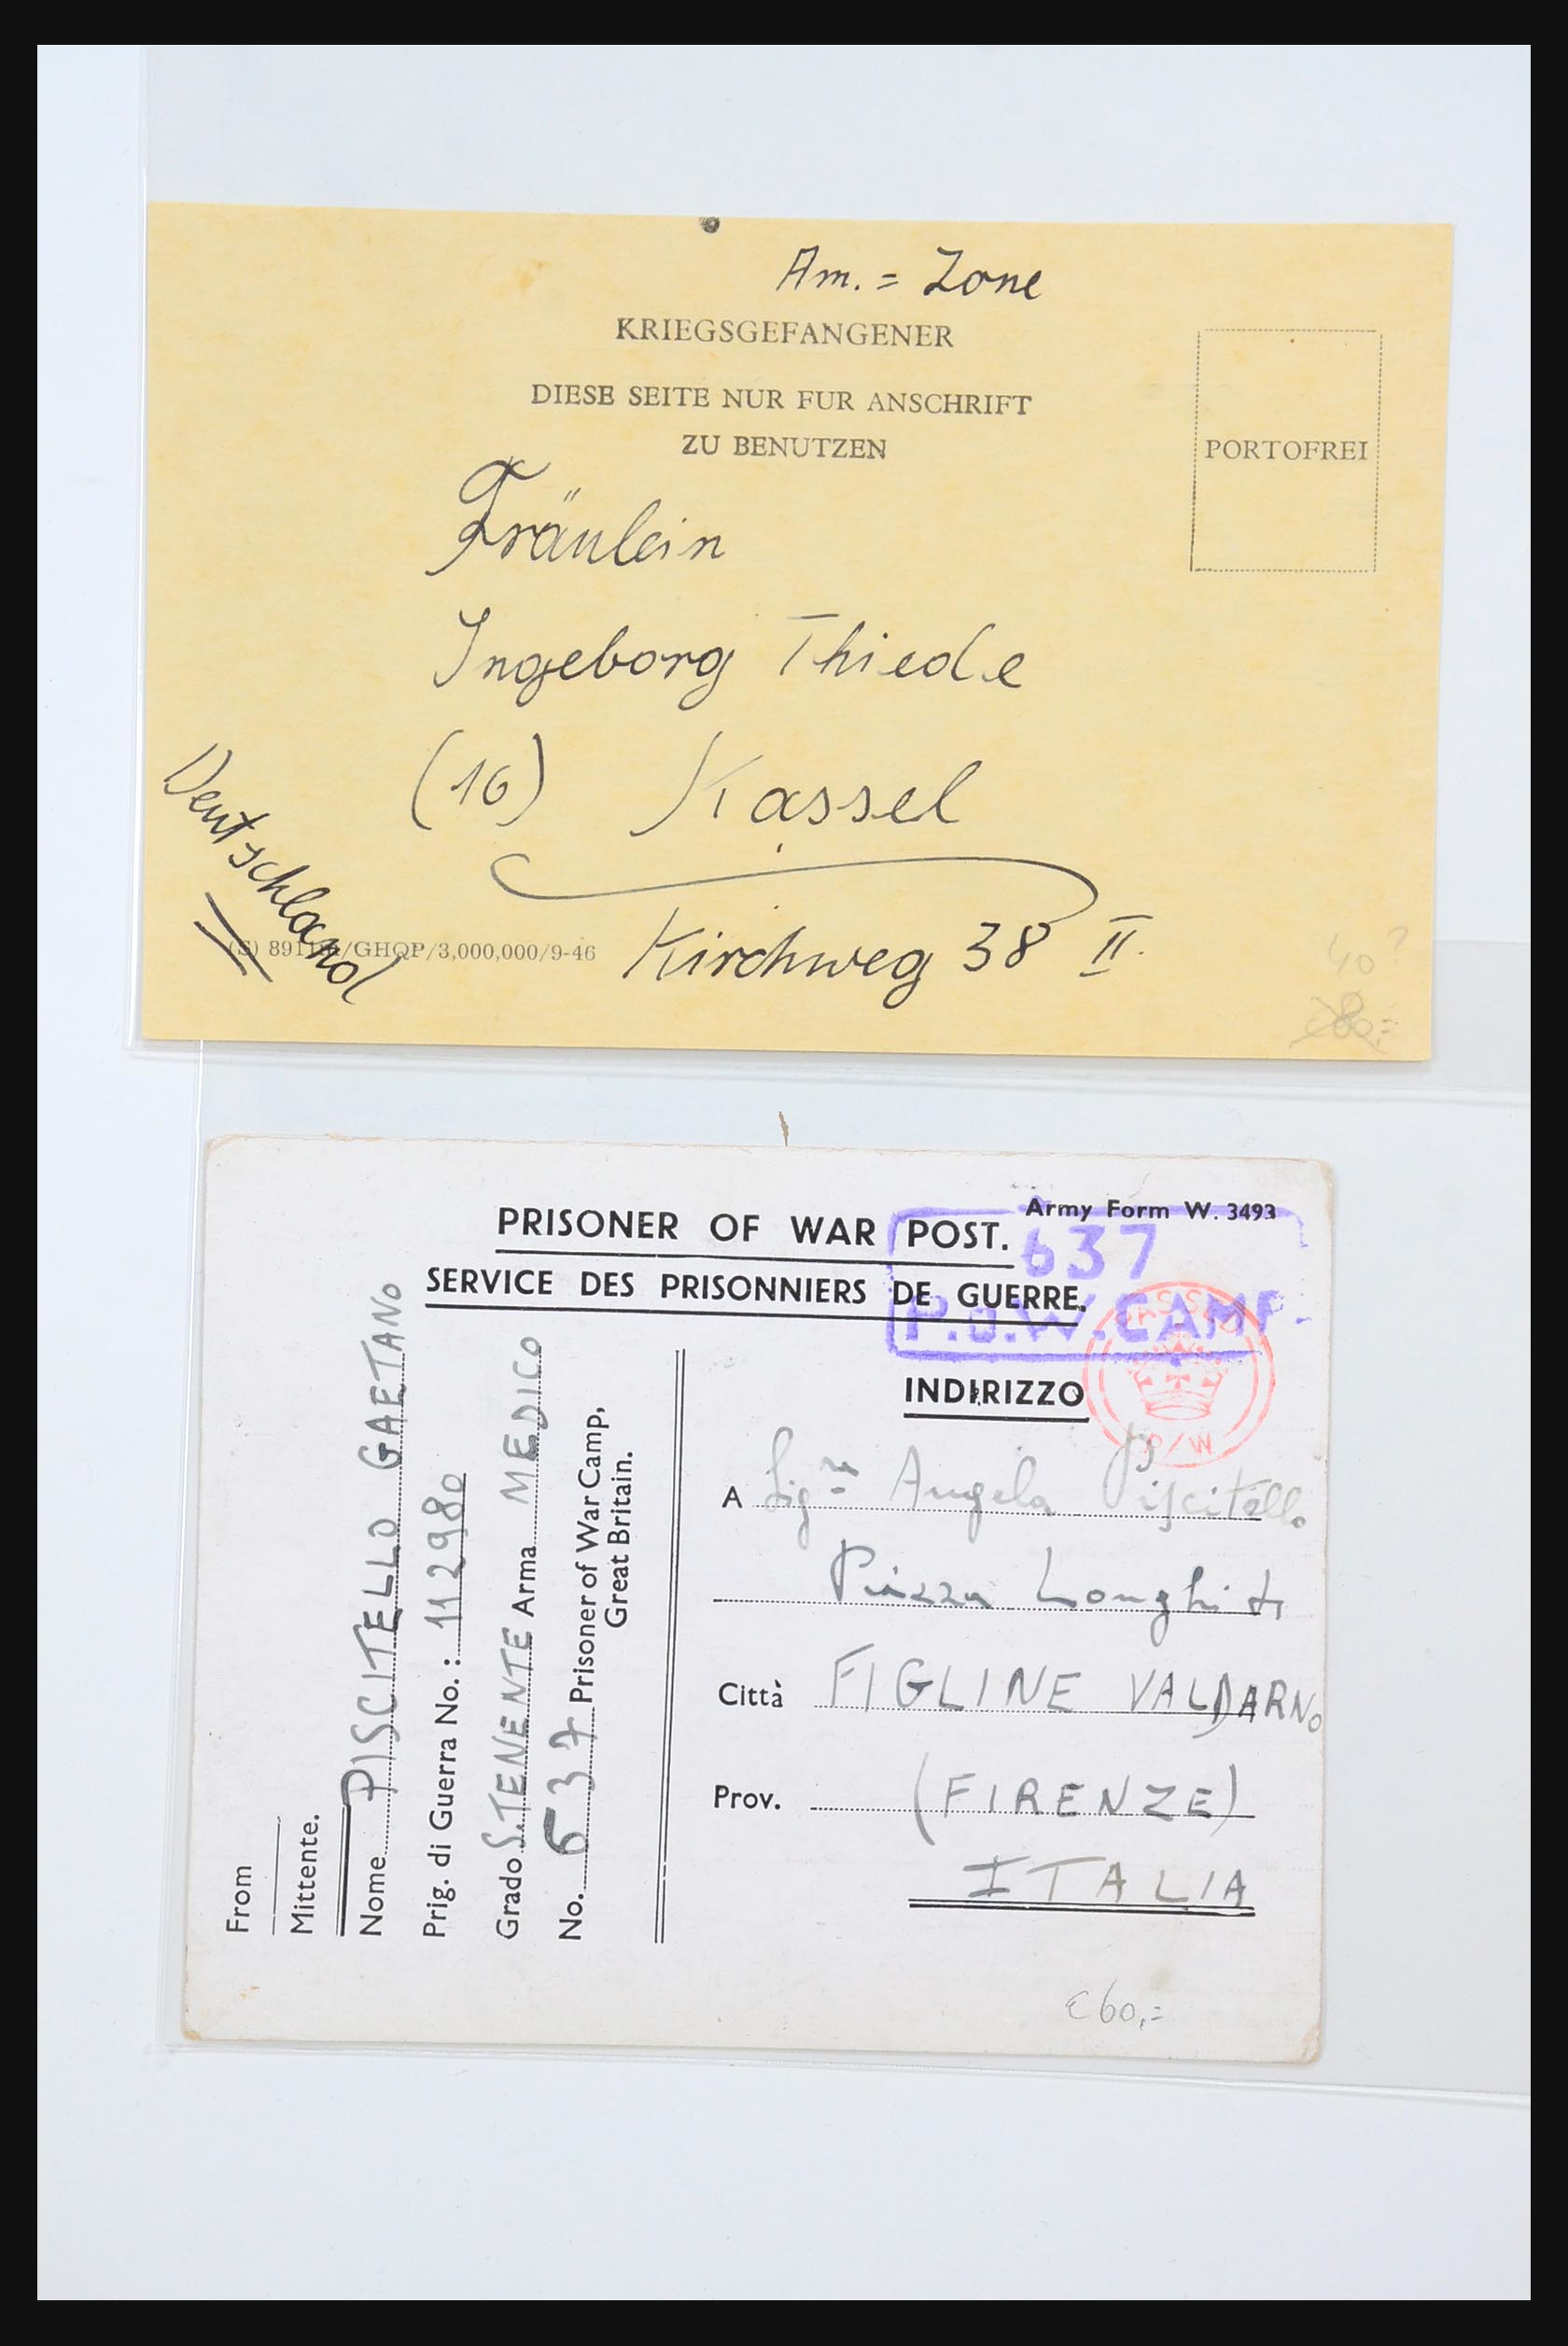 Am. = Zone
KRIEGSGEFANGENER
DIESE SEITE NUR FUR ANSCHRIFT
ZU BENUTZEN
PORTOFREI
Fräulein
Ingeborg Thiede
(16) Kassel
Kirchweg 38 II.
Deutschland
/GHQP/3,000,000/9-46
40?
80.=
Army Form W. 3493
PRISONER OF WAR POST.
SERVICE DES PRISONNIERS DE GUERRE.
637
P.O.W. CAMP.
PASSED
P/W
From
Mittente.
Nome PISCITELLO GAETANO
Prig. di Guerra No.: 112980
Grado S.TENENTE Arma MEDICO
No. 637 Prisoner of War Camp,
Great Britain.
INDIRIZZO
A Sig.ra Angela Piscitello
Piazza Longhi
Città FIGLINE VALDARNO
Prov. (FIRENZE)
ITALIA
€60,=